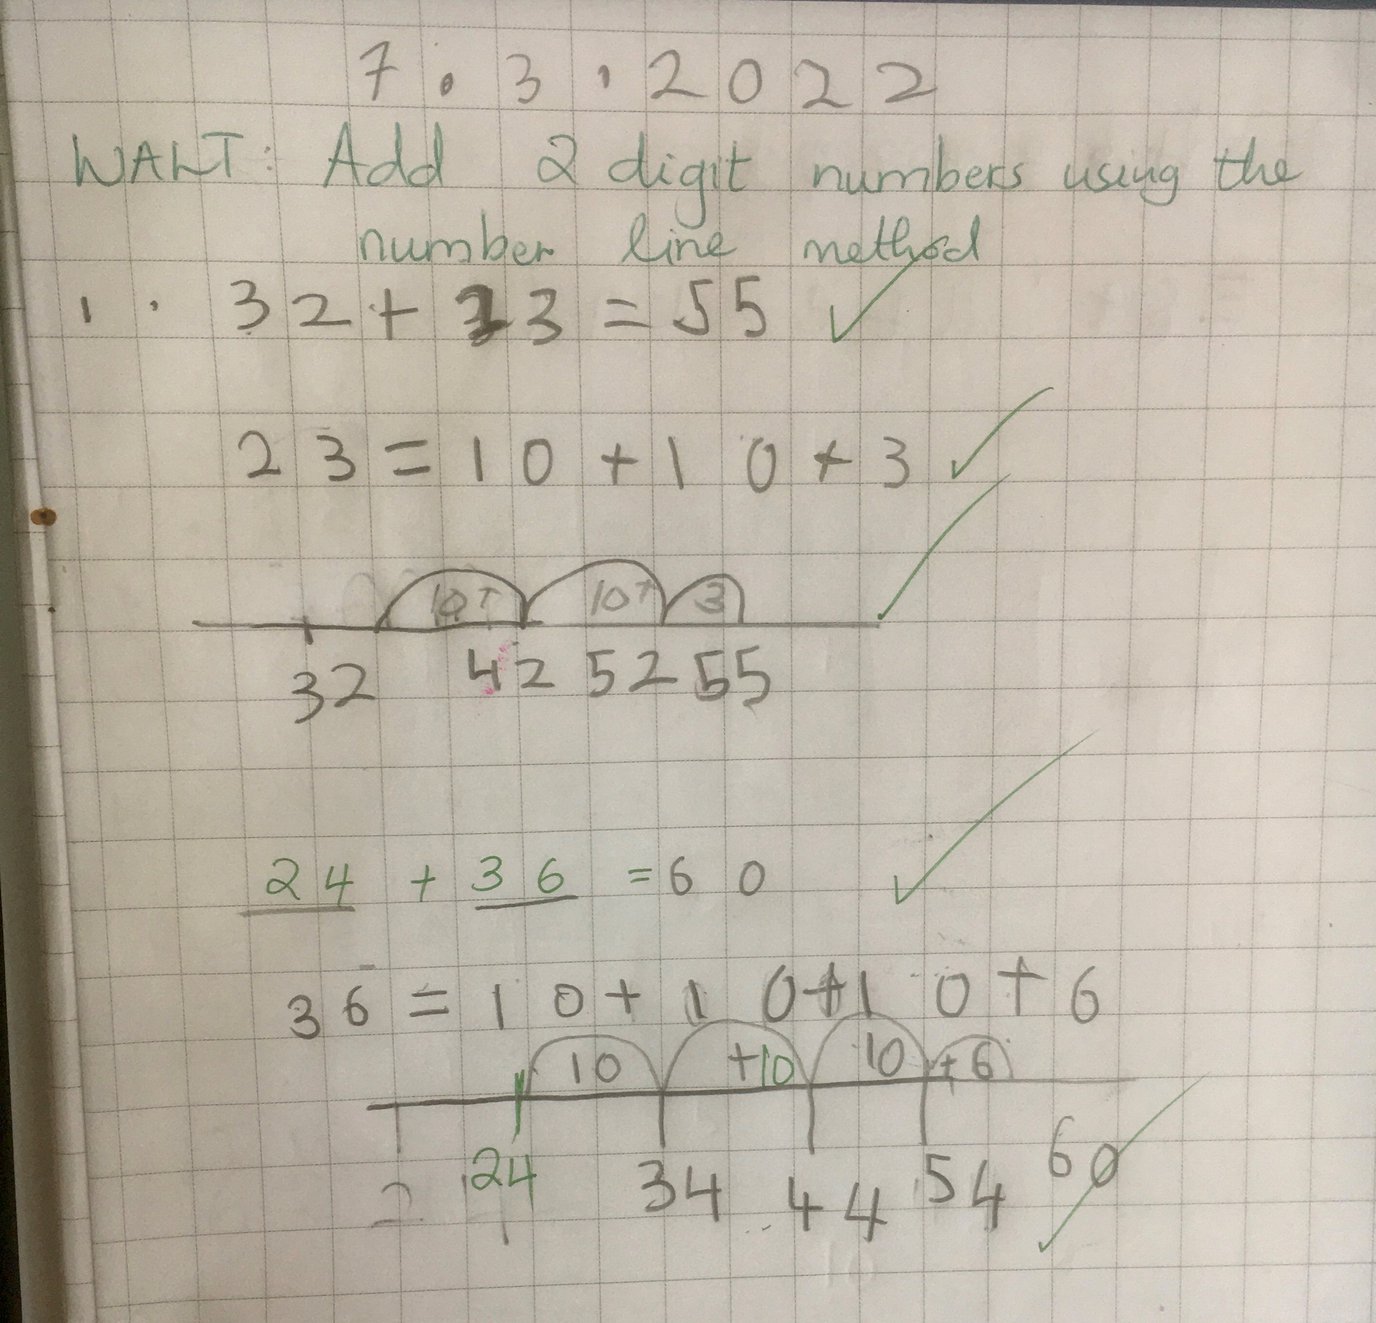 7.3.2022
WALT: Add 2 digit numbers using the
number line method
1. 32+23=55
23=10+10+3
10+ 10+ 3
32 42 52 55
24 + 36 =60
36=10+10+10+6
10 +10 10 +6
24 34 44 54 60